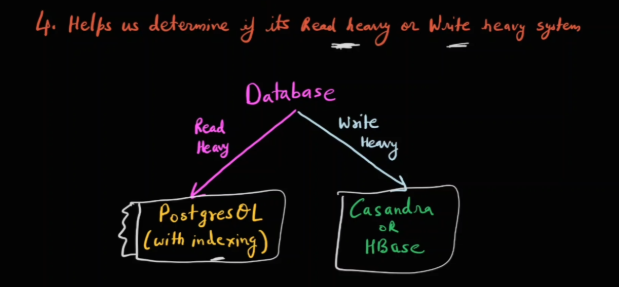 4. Helps us determine if its Read heavy or Write heavy system,
Database
Read
Heavy
Write
Heavy
PostgresQL
(with indexing)
Casandra
OR
HBase